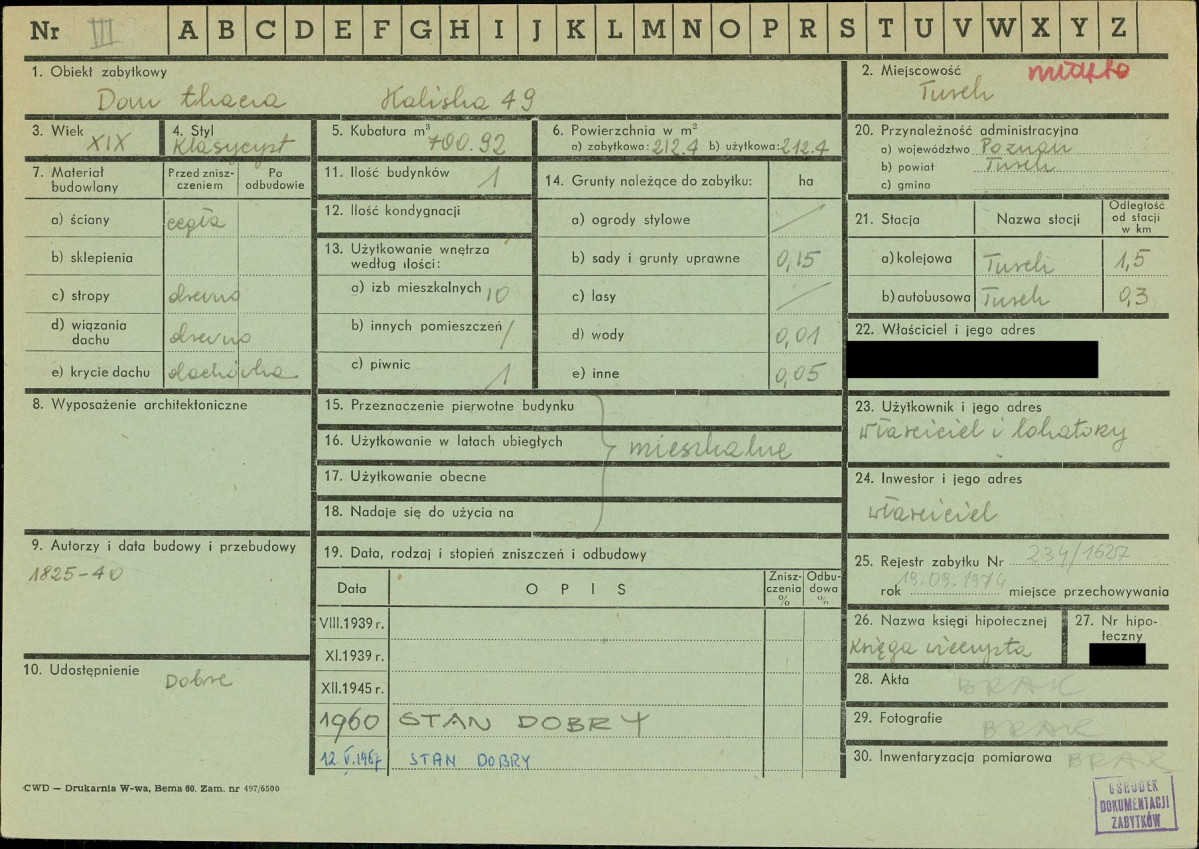 Nr III A B C D E F G H I J K L M N O P R S T U V W X Y Z
1. Obiekt zabytkowy
Dom tkacza Kaliska 49
2. Miejscowość miasto
Turek
3. Wiek
XIX
4. Styl
Klasycyst
5. Kubatura m³
700.92
6. Powierzchnia w m²
a) zabytkowa: 212.4 b) użytkowa: 212.4
20. Przynależność administracyjna
a) województwo Poznań
b) powiat Turek
c) gmina
7. Materiał budowlany
Przed zniszczeniem
Po odbudowie
a) ściany cegła
b) sklepienia
c) stropy drewno
d) wiązania dachu drewno
e) krycie dachu dachówka
11. Ilość budynków 1
12. Ilość kondygnacji
13. Użytkowanie wnętrza
według ilości:
a) izb mieszkalnych 10
b) innych pomieszczeń /
c) piwnic 1
14. Grunty należące do zabytku: ha
a) ogrody stylowe /
b) sady i grunty uprawne 0,15
c) lasy /
d) wody 0,01
e) inne 0,05
21. Stacja Nazwa stacji Odległość od stacji w km
a) kolejowa Turek 1,5
b) autobusowa Turek 0,3
22. Właściciel i jego adres
8. Wyposażenie architektoniczne
15. Przeznaczenie pierwotne budynku
16. Użytkowanie w latach ubiegłych mieszkalne
17. Użytkowanie obecne
18. Nadaje się do użycia na
23. Użytkownik i jego adres
właściciel i lokatorzy
24. Inwestor i jego adres
właściciel
9. Autorzy i data budowy i przebudowy
1825-40
19. Data, rodzaj i stopień zniszczeń i odbudowy
Data OPIS Zniszczenia % Odbudowa %
VIII.1939 r.
XI.1939 r.
XII.1945 r.
1960 STAN DOBRY
12.V.1967 STAN DOBRY
25. Rejestr zabytku Nr 234/1627
rok 19.09.1974 miejsce przechowywania
26. Nazwa księgi hipotecznej
Księga wieczysta
27. Nr hipoteczny
10. Udostępnienie Dobre
28. Akta BRAK
29. Fotografie BRAK
30. Inwentaryzacja pomiarowa BRAK
CWD — Drukarnia W-wa, Bema 60. Zam. nr 497/6500
OŚRODEK
DOKUMENTACJI
ZABYTKÓW